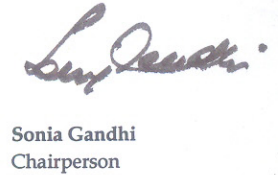 Sonia Gandhi
Sonia Gandhi
Chairperson